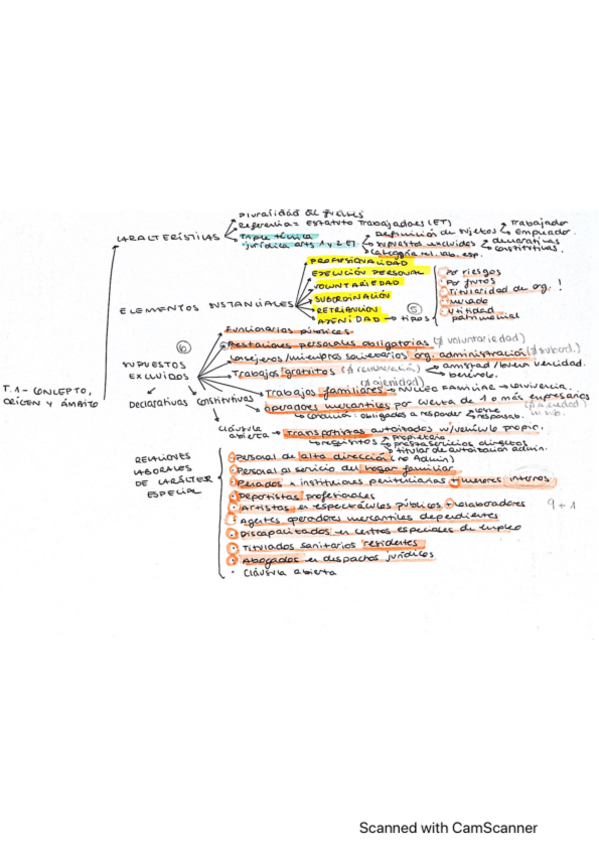 Pluralidad de fuentes
Referencia = Estatuto Trabajadores (ET)
CARACTERÍSTICAS
Triple técnica jurídica arts 1 y 2 ET
Definición de sujetos
Trabajador
Empleador.
Supuestos excluidos
declarativas
constitutivas.
Categoría rel. lab. esp.
ELEMENTOS SUSTANCIALES
PROFESIONALIDAD
EJECUCIÓN PERSONAL
VOLUNTARIEDAD
SUBORDINACIÓN
RETRIBUCIÓN
AJENIDAD → tipos
5
Por riesgos
Por frutos
Titularidad de org. !
Mercado
Utilidad patrimonial
T.1 - CONCEPTO, ORIGEN Y ÁMBITO
6
SUPUESTOS EXCLUIDOS
Declarativas
Constitutivas
Funcionarios públicos.
Prestaciones personales obligatorias (∄ voluntariedad)
Consejeros/miembros societarios org. administración (∄ subord.)
Trabajos gratuitos (∄ remuneración)
amistad/buena vecindad.
benévolo.
(∄ ajenidad)
Trabajos familiares → NÚCLEO FAMILIAR → convivencia.
Operadores mercantiles por cuenta de 1 o más empresarios
obligados a responder
cláusula abierta → Transportistas autorizados w/vehículo propio.
requisitos
propietario
presta servicios directos
titular de autorización admin.
RELACIONES LABORALES DE CARÁCTER ESPECIAL
Personal de alta dirección (no Admin)
Personal al servicio del hogar familiar
Penados en instituciones penitenciarias + menores internos
Deportistas profesionales
Artistas en espectáculos públicos + colaboradores
9 + 1
Agentes operadores mercantiles dependientes
Discapacitados en centros especiales de empleo
Titulados sanitarios residentes
Abogados en despachos jurídicos
· Cláusula abierta
Scanned with CamScanner